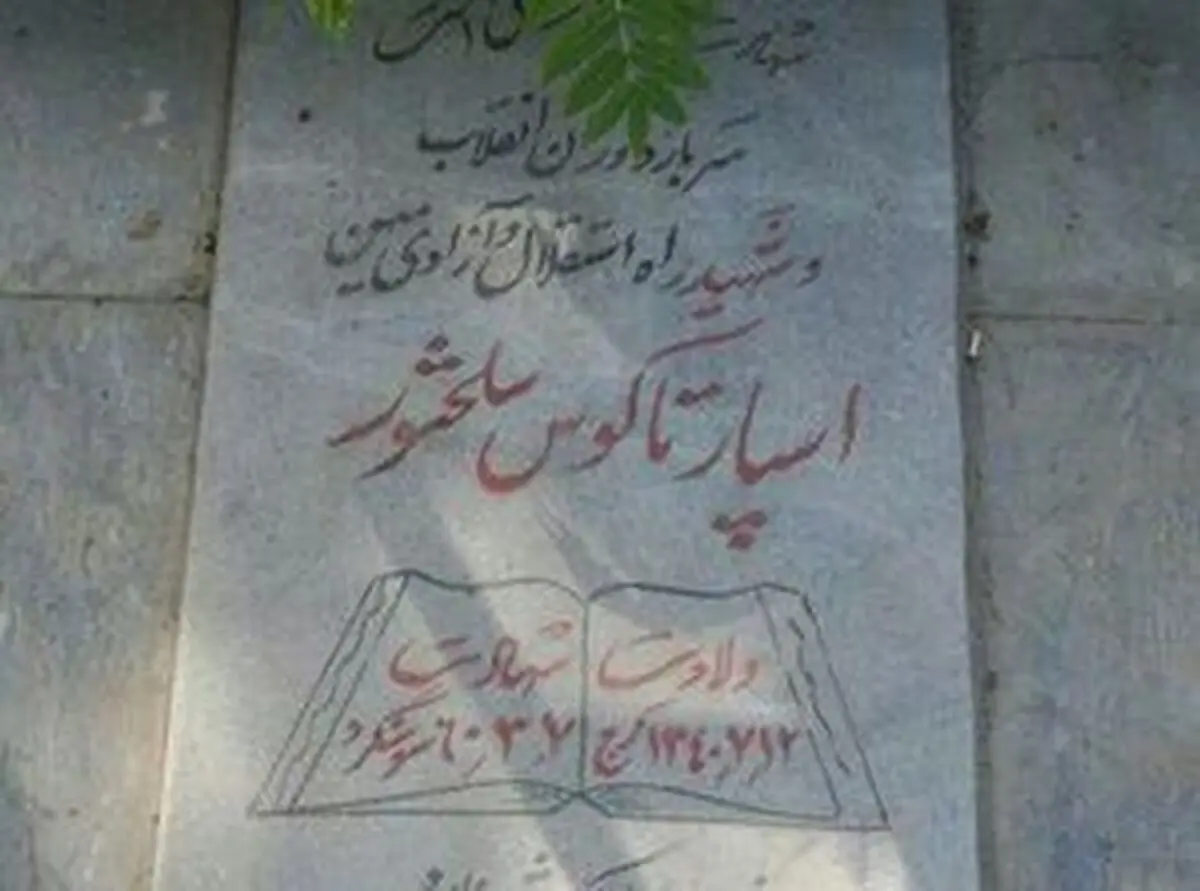 سرباز دوران انقلاب
و شهید راه استقلال و آزادی میهن
اسپارتاکوس سلحشور
ولادت
۱۳٤۰٫۷٫۱۲ کرج
شهادت
٦۰٫۳٫۷ سوسنگرد